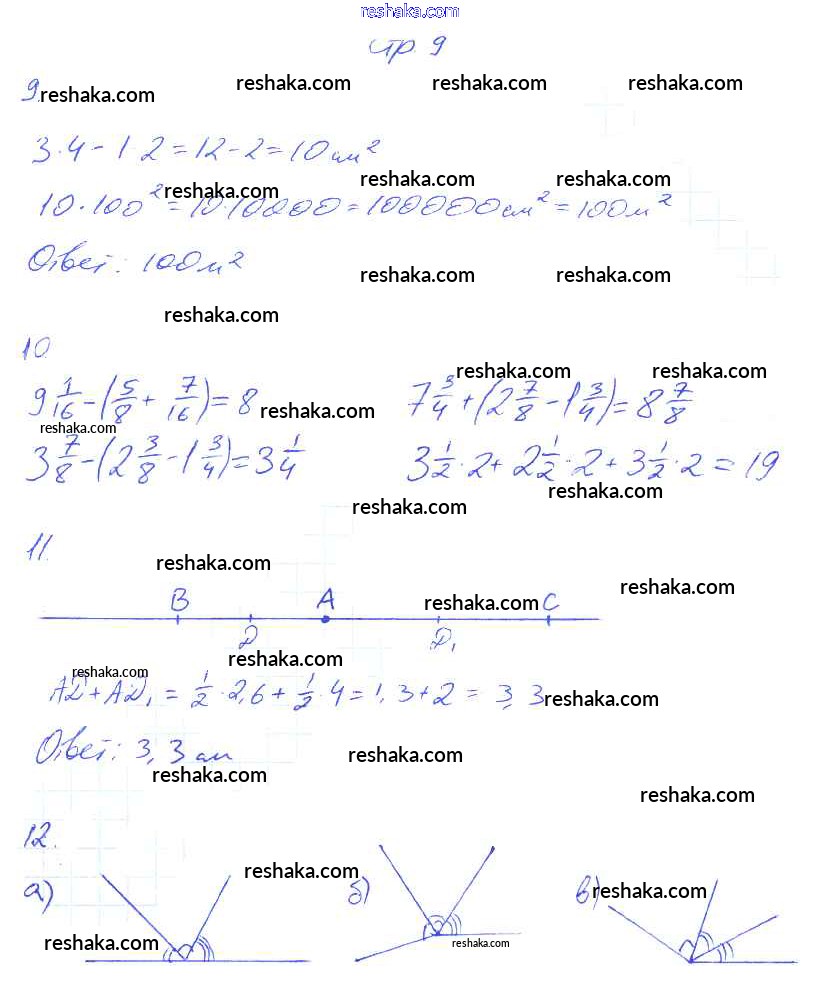 reshaka.com
стр. 9
9. reshaka.com reshaka.com reshaka.com reshaka.com
3·4-1·2=12-2=10см²
reshaka.com reshaka.com reshaka.com
10·100²=10·10000=100000см²=100м²
Ответ: 100м²
reshaka.com reshaka.com
reshaka.com
10.
reshaka.com reshaka.com
9 1/16-(5/8+7/16)=8 reshaka.com 7 3/4+(2 7/8-1 3/4)=8 7/8
reshaka.com
3 7/8-(2 3/8-1 3/4)=3 1/4 3 1/2·2+2 1/2·2+3 1/2·2=19
reshaka.com
reshaka.com
11.
reshaka.com reshaka.com
B A reshaka.com C
D D₁
reshaka.com
reshaka.com
AD+AD₁=1/2·2,6+1/2·4=1,3+2=3,3 reshaka.com
Ответ: 3,3см
reshaka.com reshaka.com
reshaka.com
12.
а) reshaka.com б) в) reshaka.com
reshaka.com reshaka.com